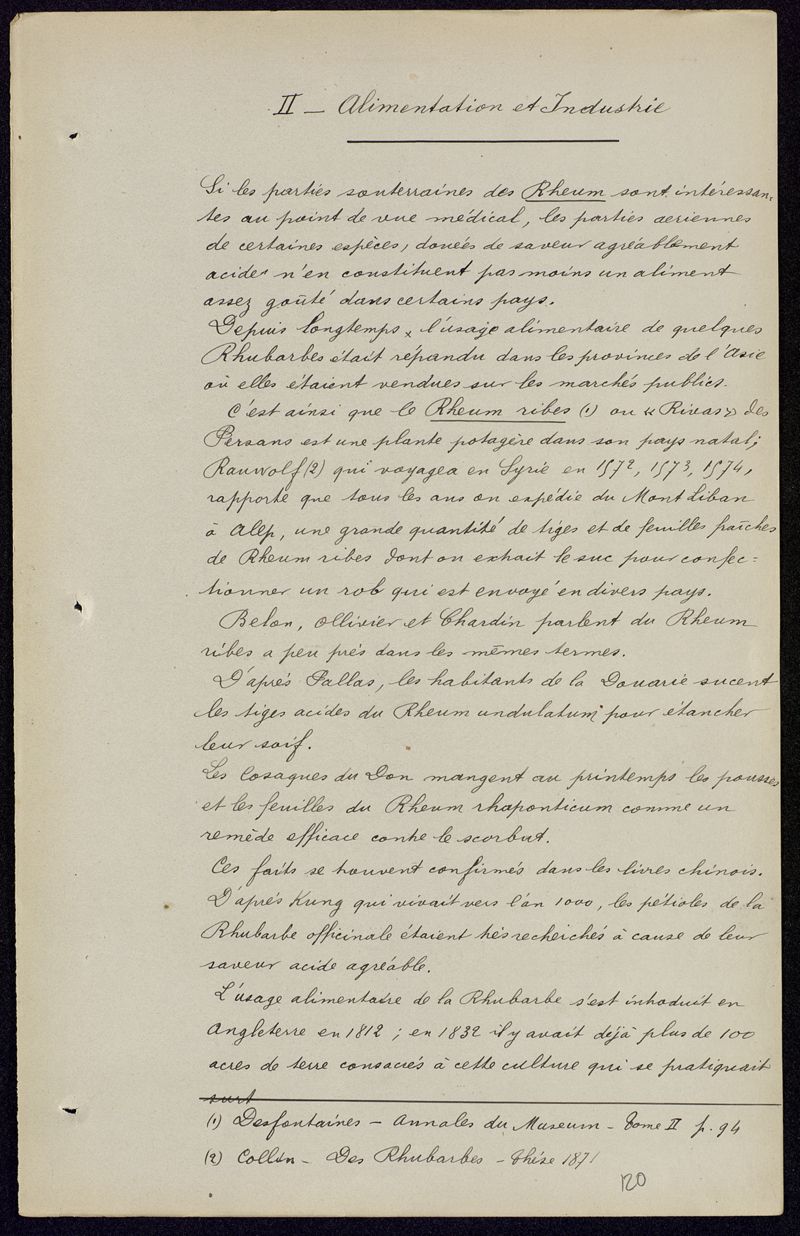 II — Alimentation et Industrie
Si les parties souterraines des Rheum sont intéressan-
tes au point de vue médical, les parties aeriennes
de certaines espèces, douées de saveur agréablement
acide, n'en constituent pas moins un aliment
assez goûté dans certains pays.
Depuis longtemps, l'usage alimentaire de quelques
Rhubarbes était répandu dans les provinces de l'Asie
où elles étaient vendues sur les marchés publics.
C'est ainsi que le Rheum ribes (1) ou « Rivas » des
Persans est une plante potagère dans son pays natal;
Rauwolf (2) qui voyagea en Syrie en 1572, 1573, 1574,
rapporte que tous les ans on expédie du Mont Liban
à Alep, une grande quantité de tiges et de feuilles fraîches
de Rheum ribes dont on extrait le suc pour confec=
tionner un rob qui est envoyé en divers pays.
Belon, Ollivier et Chardin parlent du Rheum
ribes a peu près dans les mêmes termes.
D'après Pallas, les habitants de la Douarie sucent
les tiges acides du Rheum undulatum pour étancher
leur soif.
Les Cosaques du Don mangent au printemps les pousses
et les feuilles du Rheum rhaponticum comme un
remède efficace contre le scorbut.
Ces faits se trouvent confirmés dans les livres chinois.
D'après Kung qui vivait vers l'an 1000, les pétioles de la
Rhubarbe officinale étaient très recherchés à cause de leur
saveur acide agréable.
L'usage alimentaire de la Rhubarbe s'est introduit en
Angleterre en 1812 ; en 1832 il y avait déjà plus de 100
acres de terre consacrés à cette culture qui se pratiquait
surt
(1) Desfontaines — Annales du Museum — Tome II p. 94
(2) Collin — Des Rhubarbes — Thèse 1871
120